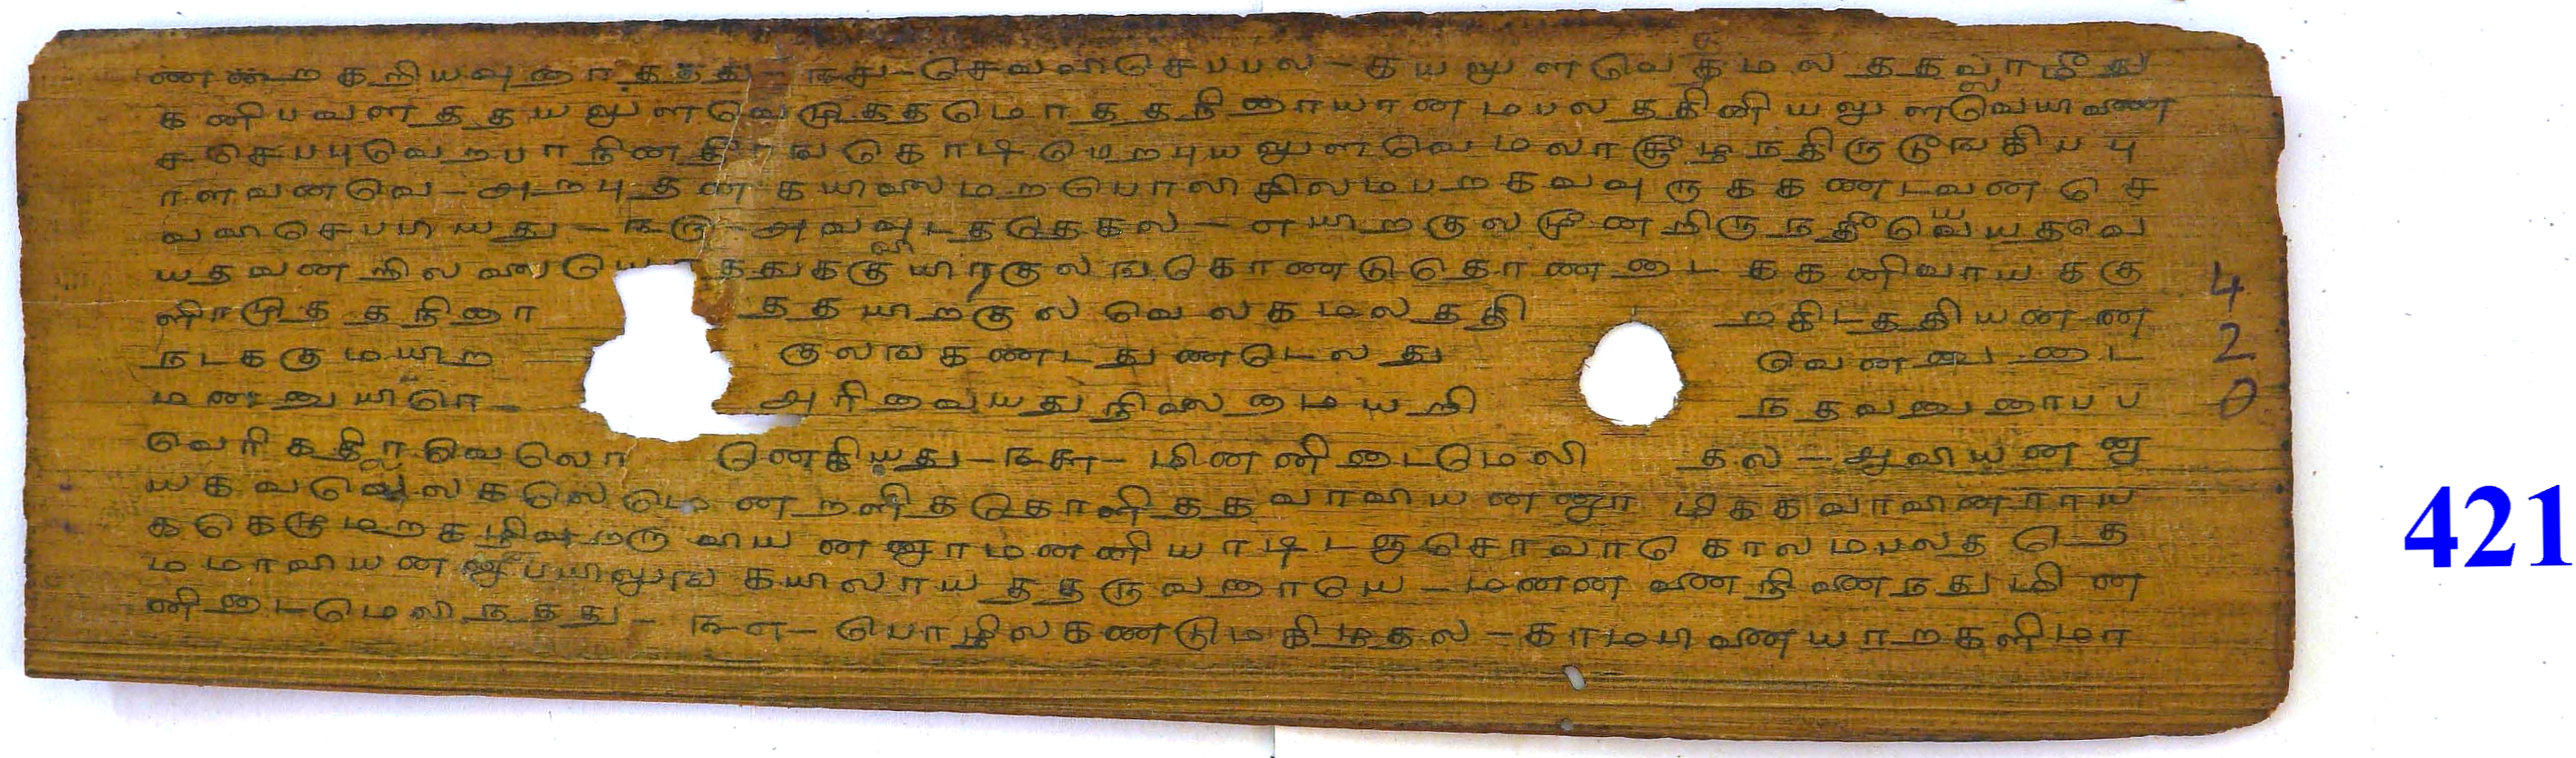 ணனறகறியவுறைாததது-௩௪-செவவிசெபபல-கயலுளவெகமலததலாமீது
கனிபவளததயலுளவெமுததமொததநிரையானமபலததினியலுளவெயிணை
சசெபபுவெறபாநினதிஙகொடிமெறபுயலுளவெமலாசூழநதிருடூஙகியபு
ாளவனவெ-அறபுதன கயிலைமறபொலிசிலமபறகவவுருககணடவன செ
வவிசெபபியது-௩௫-அவவுடததெகல-எயிறகுலமூனறிருநதீயெயதவெ
யதவனறிலலையெ ததுககுயிரகுலஙகொணடுதொணடைககனிவாயககு
ளிாமுததநிரை ததயிறகுல வெலகமலததி றகிடததியனன
நடககுமயிற குலஙகணடதுணடெலது வெனனுடை
மனனுயிரெ- அரிவையதுநிலைமையறி நதவனுரைபப
வெரிகதிரவெலொ னெகியது-௩௬-மினனிடைமெலி தல-ஆவியனனு
யகவவெலகலெமெனறளிததொளிததவாவியனனா மிககவாவினராய
கெழுமறகழிவுறறுவியனனாமனனியாடிடஞசொவாகொலமபலததெ
மமாவியனனூபயிலுஙகயிலாயததருவரையெ-மனனனைநினைநதுமின
னிடைமெலிநதது-௩௭-பொழிலகணடுமகிழதல-காமபிணையாறகளிமா
4
2
0
421